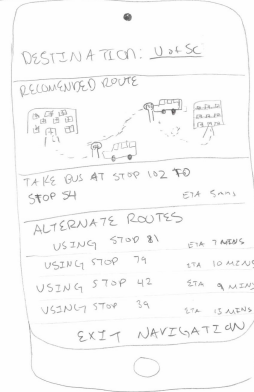 DESTINATION: U of SC
RECOMENDED ROUTE
TAKE BUS AT STOP 102 TO
STOP 54 ETA 5MNS
ALTERNATE ROUTES
USING STOP 81 ETA 7 MINS
USING STOP 79 ETA 10 MINS
USING STOP 42 ETA 9 MINS
USING STOP 39 ETA 15 MINS
EXIT NAVIGATION